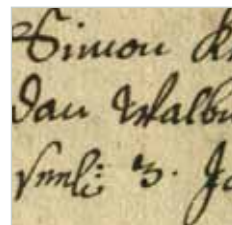 Simon K
dan Walbu
3. Ja